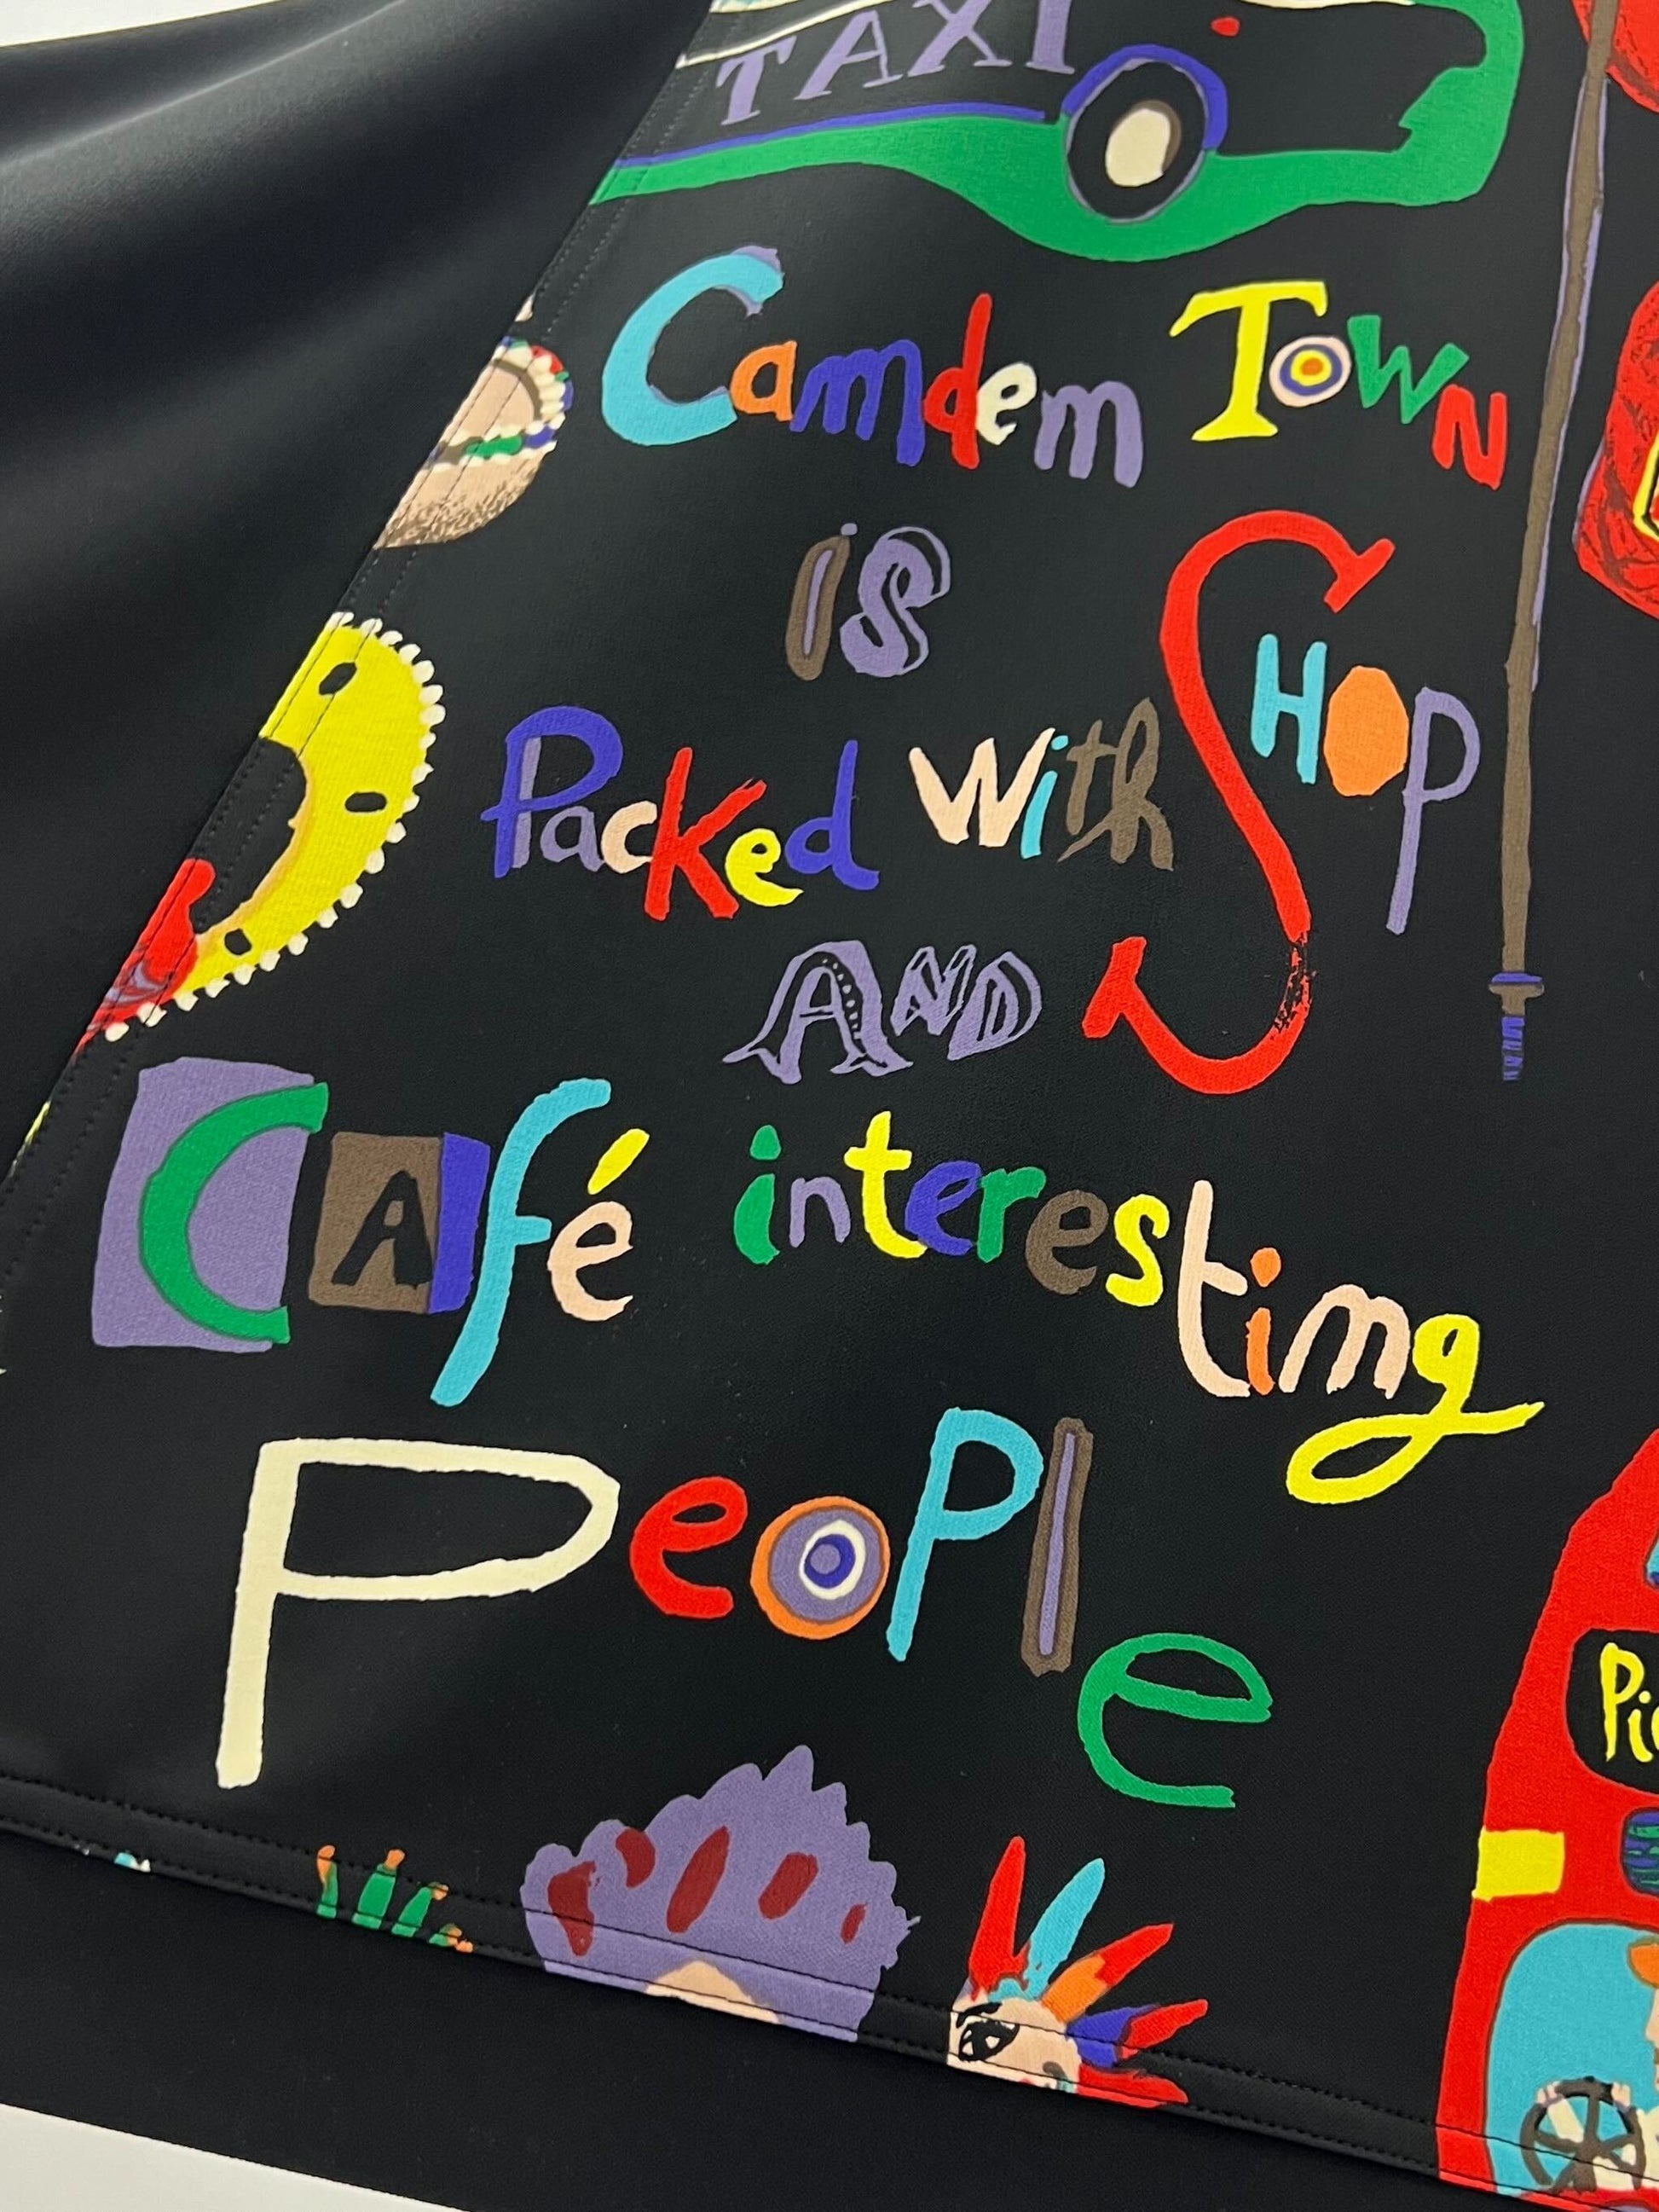 TAXI
Camdem Town
is
Packed with SHOP
AND
CAfé interesting
PeoPle